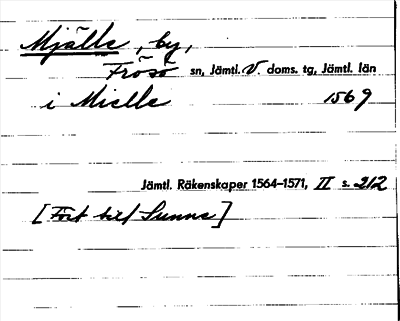 Mjälle, by,
Frösö sn, Jämtl. V. doms. tg, Jämtl. län
i Mielle 1569
Jämtl. Räkenskaper 1564–1571, II s. 212
[Fört till Sunne]